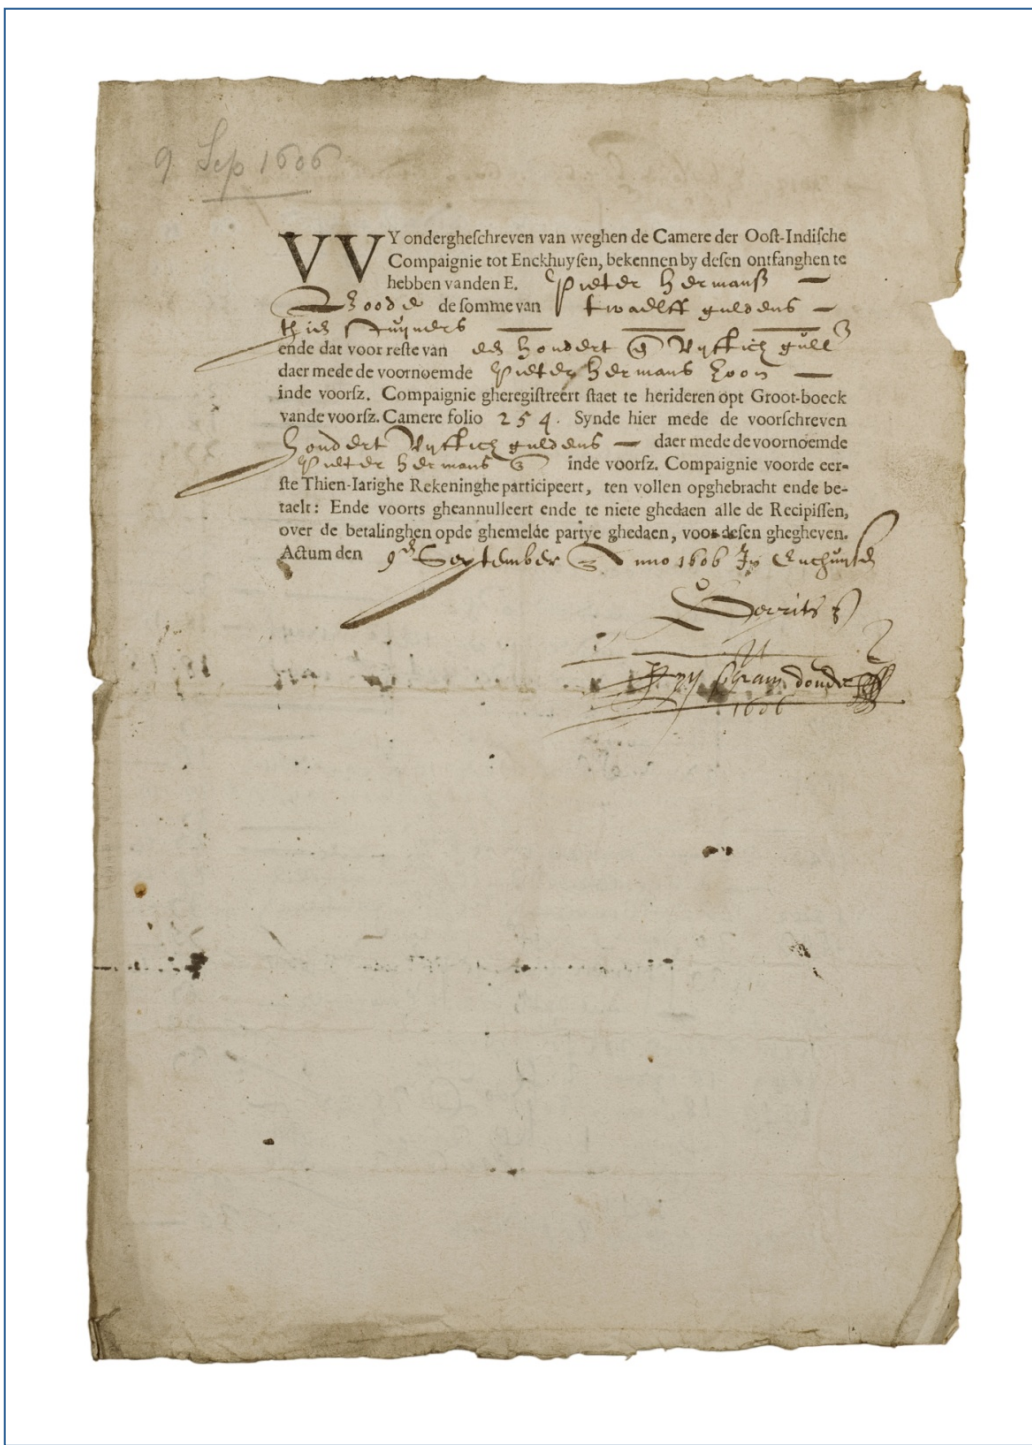 9 Sep 1606
VVY ondergheſchreven van weghen de Camere der Ooſt-Indiſche
Compaignie tot Enckhuyſen, bekennen by deſen ontfanghen te
hebben vanden E. Pieter Hermanß
de ſomme van twaelff guldens
thien stuyvers
ende dat voor reſte van een hondert Vyftich gull
daer mede de voornoemde Pieter Hermans zoon
inde voorſz. Compaignie gheregiſtreert ſtaet te herideren opt Groot-boeck
vande voorſz. Camere folio 254. Synde hier mede de voorſchreven
hondert Vyftich guldens daer mede de voornoemde
Pieter Hermans inde voorſz. Compaignie voorde eer-
ſte Thien-Iarighe Rekeninghe participeert, ten vollen opghebracht ende be-
taelt: Ende voorts gheannulleert ende te niete ghedaen alle de Recipiſſen,
over de betalinghen opde ghemelde partye ghedaen, voor deſen ghegheven.
Actum den 9 September Anno 1606 In
1606